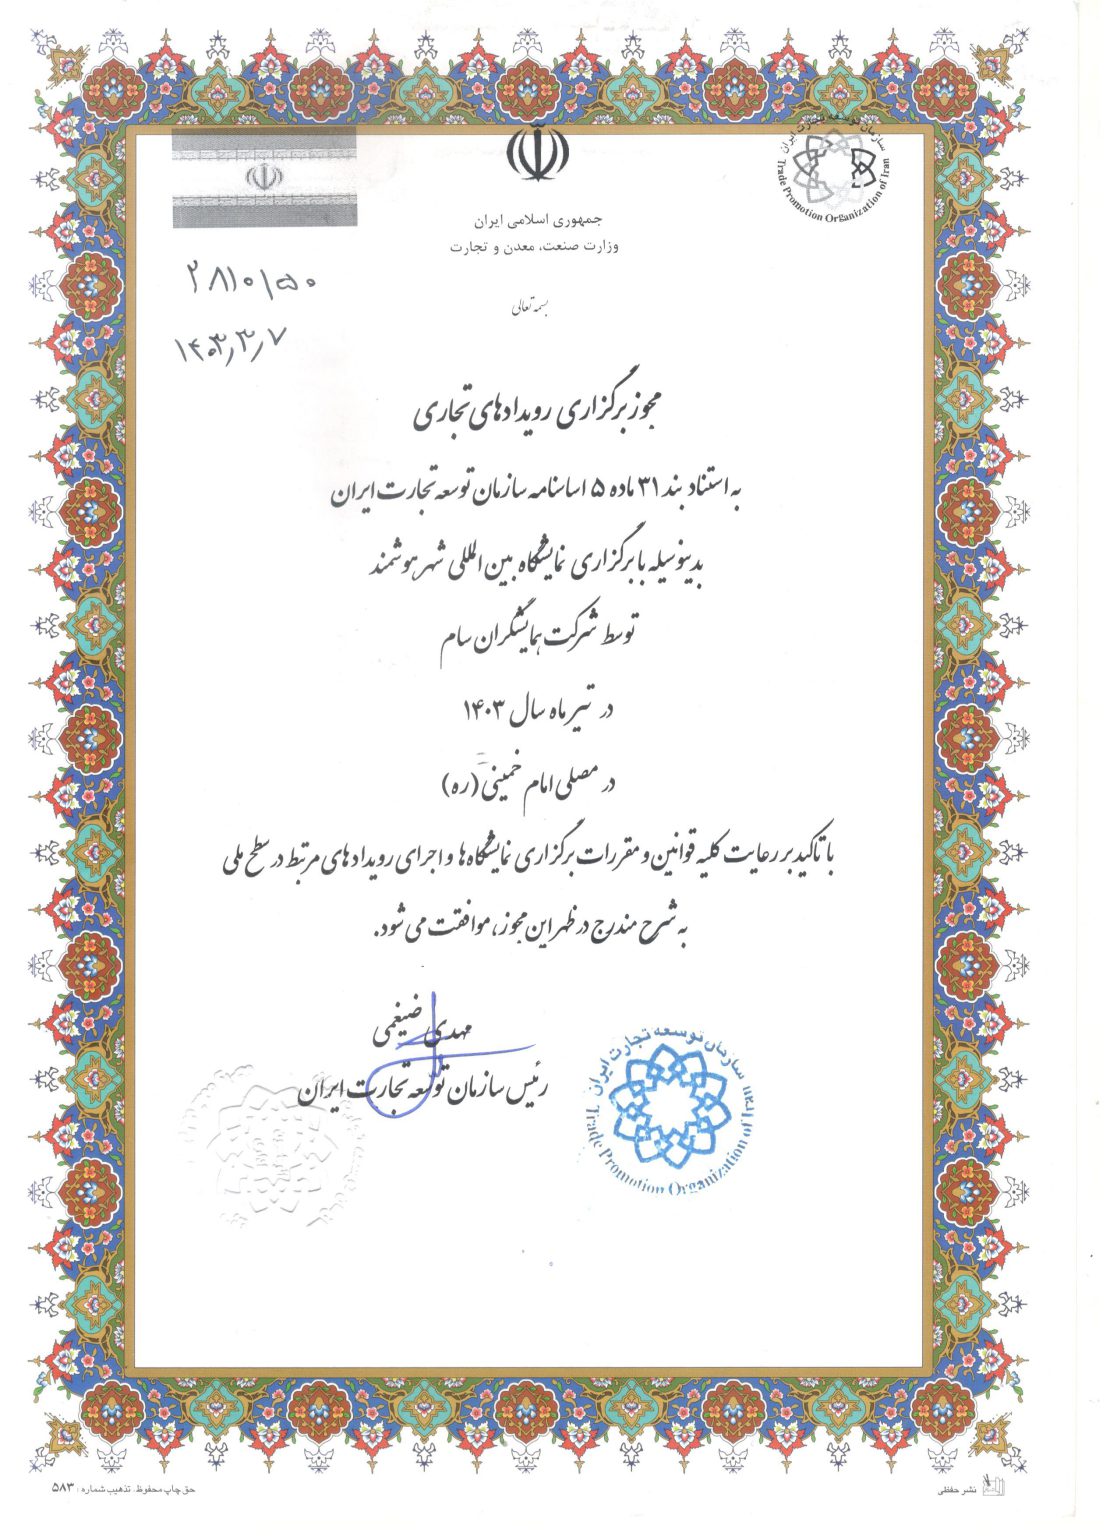 سازمان توسعه تجارت ایران
Trade Promotion Organization of Iran
جمهوری اسلامی ایران
وزارت صنعت، معدن و تجارت
۲۸۱۰۱۵۰
۱۴۰۳٫۳٫۷
بسمه تعالی
مجوز برگزاری رویدادهای تجاری
به استناد بند ۳۱ ماده ۵ اساسنامه سازمان توسعه تجارت ایران
بدینوسیله با برگزاری نمایشگاه بین المللی شهر هوشمند
توسط شرکت همایشگران سام
در تیر ماه سال ۱۴۰۳
در مصلی امام خمینی (ره)
با تاکید بر رعایت کلیه قوانین و مقررات برگزاری نمایشگاه ها و اجرای رویدادهای مرتبط در سطح ملی
به شرح مندرج در ظهر این مجوز، موافقت می شود.
مهدی ضیغمی
رئیس سازمان توسعه تجارت ایران
سازمان توسعه تجارت ایران
Trade Promotion Organization of Iran
نشر حفظی
حق چاپ محفوظ. تذهیب شماره : ۵۸۳